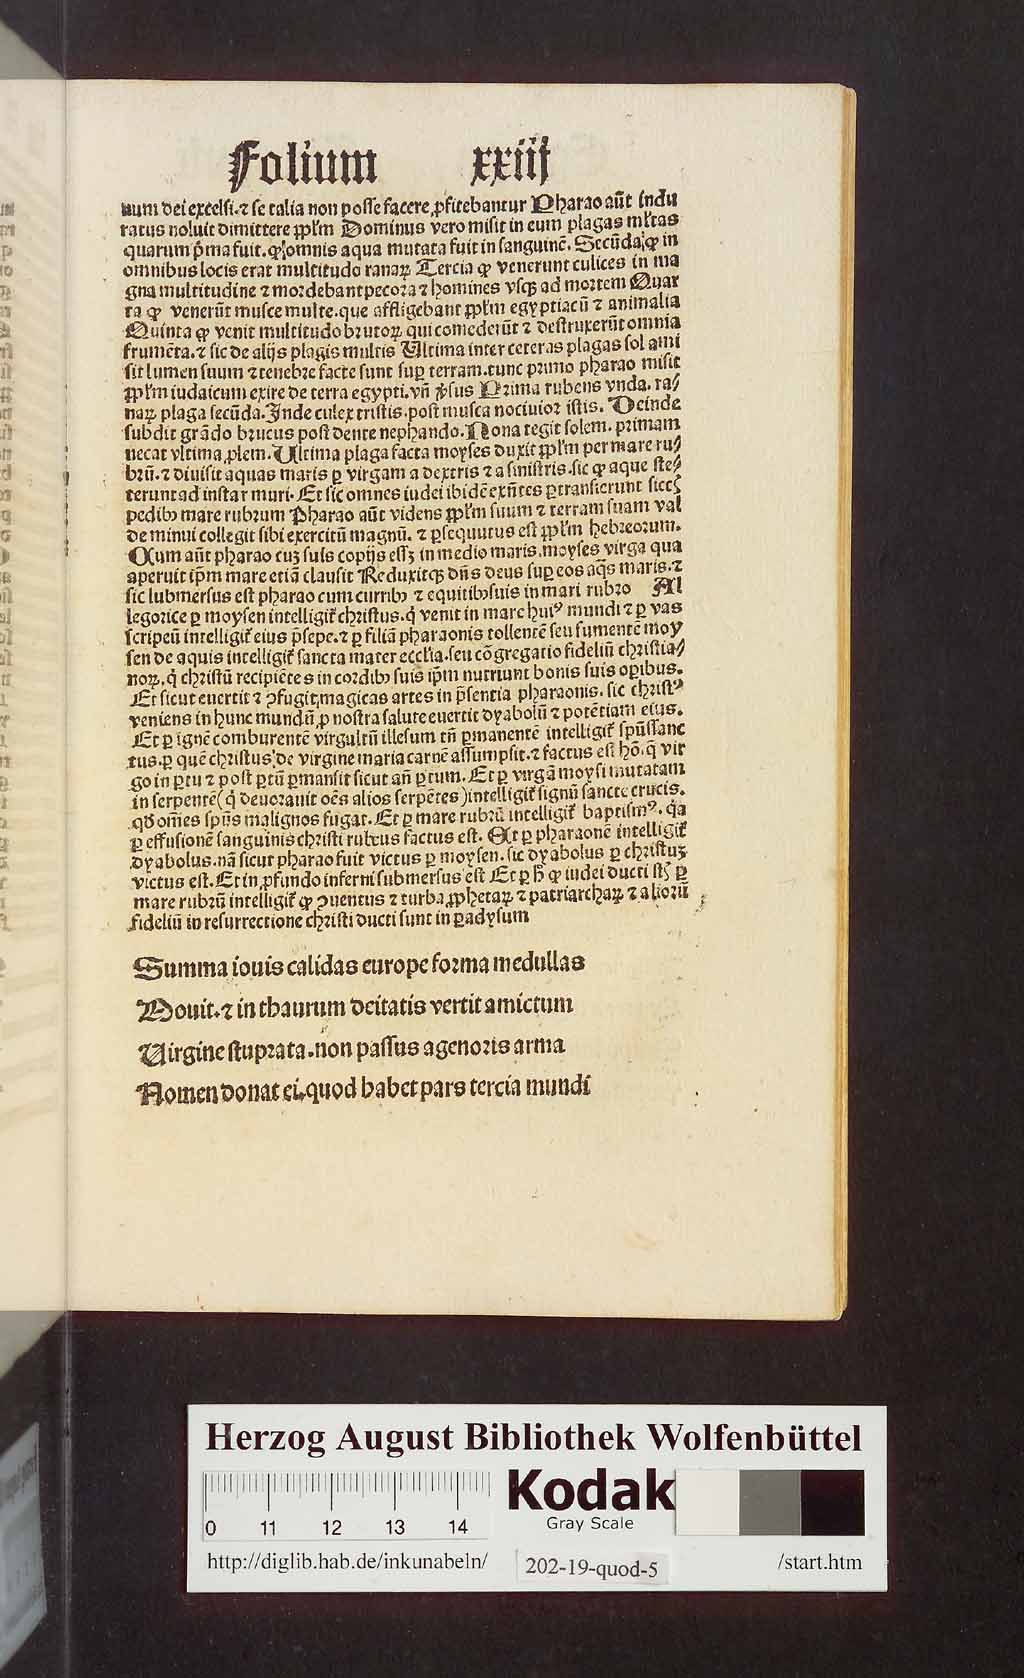 Folium xxiij
num dei excelsi. ⁊ se talia non posse facere ꝓfitebantur Pharao aūt indu
ratus noluit dimittere ppl̄m Dominus vero misit in eum plagas ml̄tas
quarum p̄ma fuit. ꝙ omnis aqua mutata fuit in sanguinē. Secūda ꝙ in
omnibus locis erat multitudo ranaꝝ Tercia ꝙ venerunt culices in ma
gna multitudine ⁊ mordebant pecora ⁊ homines vsqꝫ ad mortem Quar
ta ꝙ venerūt musce multe. que affligebant ppl̄m egyptiacū ⁊ animalia
Quinta ꝙ venit multitudo brutoꝝ qui comederūt ⁊ destruxerūt omnia
frumēta. ⁊ sic de alijs plagis multis Ultima inter ceteras plagas sol ami
sit lumen suum ⁊ tenebre facte sunt suꝑ terram. tunc primo pharao misit
ppl̄m iudaicum exire de terra egypti. vn̄ ꝟsus Prima rubens vnda. ra⸗
naꝝ plaga secūda. Inde culex tristis. post musca nociuior istis. Deinde
subdit grādo brucus post dente nephando. Nona tegit solem. primam
necat vltima ꝓlem. Ultima plaga facta moyses duxit ppl̄m per mare ru⸗
brū. ⁊ diuisit aquas maris ꝑ virgam a dextris ⁊ a sinistris. sic ꝙ aque ste⸗
terunt ad instar muri. Et sic omnes iudei ibidē exn̄tes ꝑtransierunt sicc
pedibꝰ mare rubrum Pharao aūt videns ppl̄m suum ⁊ terram suam val
de minui collegit sibi exercitū magnū. ⁊ ꝑsequutus est ppl̄m hebreorum.
Cum aūt pharao cuꝫ suis copijs essꝫ in medio maris. moyses virga qua
aperuit ip̄m mare etiā clausit Reduxitqꝫ dn̄s deus suꝑ eos aq̄s maris. ⁊
sic submersus est pharao cum curribꝰ ⁊ equitibꝰ suis in mari rubro Al
legorice ꝑ moysen intelligit̄ christus. q̇ venit in mare huiꝰ mundi ⁊ ꝑ vas
scirpeū intelligit̄ eius p̄sepe. ⁊ ꝑ filiā pharaonis tollentē seu sumentē moy
sen de aquis intelligit̄ sancta mater ecclīa. seu cōgregatio fideliū christia⸗
noꝝ. q̇ christū recipiētes in cordibꝰ suis ip̄m nutriunt bonis suis oꝑibus.
Et sicut euertit ⁊ ꝯfugit magicas artes in p̄sentia pharaonis. sic christꝰ
veniens in hunc mundū ꝓ nostra salute euertit dyabolū ⁊ potētiam eius.
Et ꝑ ignē comburentē virgultū illesum tn̄ ꝑmanentē intelligit̄ spūssanc
tus. ꝑ quē christus de virgine maria carnē assumpsit. ⁊ factus est hō. q̄ vir
go in ꝑtu ⁊ post ꝑtū ꝑmansit sicut an̄ ꝑtum. Et ꝑ virgā moysi mutatam
in serpentē (q̇ deuorauit oēs alios serpētes) intelligit̄ signū sancte crucis.
qđ omēs spūs malignos fugat. Et ꝑ mare rubrū intelligit̄ baptismꝰ. q̇a
ꝑ effusionē sanguinis christi rubeus factus est. Et ꝑ pharaonē intelligit̄
dyabolus. nā sicut pharao fuit victus ꝑ moysen. sic dyabolus ꝑ christuꝫ
victus est. Et in ꝓfundo inferni submersus est Et ꝑ h̄ ꝙ iudei ducti st̄ ꝑ
mare rubrū intelligit̄ ꝙ ꝯuentus ⁊ turba ꝓphetaꝝ ⁊ patriarchaꝝ ⁊ aliorū
fideliū in resurrectione christi ducti sunt in ꝑadysum
Summa iouis calidas europe forma medullas
Mouit. ⁊ in thaurum deitatis vertit amictum
Uirgine stuprata. non passus agenoris arma
Nomen donat ei. quod habet pars tercia mundi
Herzog August Bibliothek Wolfenbüttel
Kodak
Gray Scale
0 11 12 13 14
http://diglib.hab.de/inkunabeln/ 202-19-quod-5 /start.htm